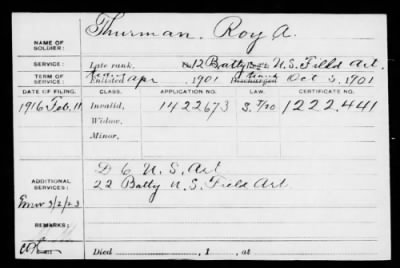 NAME OF SOLDIER: Thurman, Roy A.
SERVICE: Late rank, 12 Batty U.S. Field Art.
TERM OF SERVICE: Enlisted Apr , 1901 Discharged Oct 3, 1901
DATE OF FILING. CLASS. APPLICATION NO. LAW. CERTIFICATE NO.
1916 Feb. 11 Invalid, 1422673 1222.441
Widow,
Minor,
ADDITIONAL SERVICES: D 6 U.S. Art
22 Batty U.S. Field Art.
3/2/23
REMARKS:
Died , 1 , at